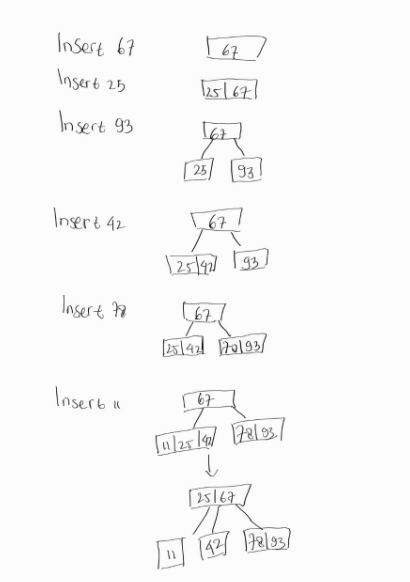 Insert 67 67
Insert 25 25|67
Insert 93 67
25 93
Insert 42 67
25|42 93
Insert 78 67
25|42 70|93
Insert 11 67
11|25|42 78|93
25|67
11 42 78|93